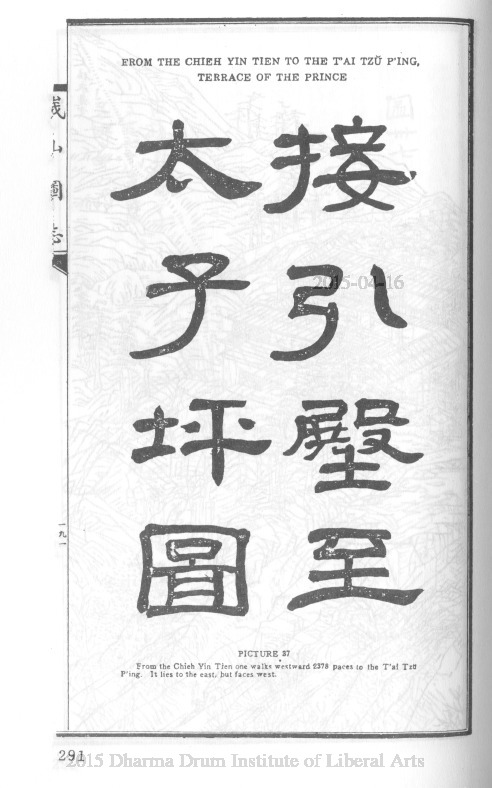 FROM THE CHIEH YIN TIEN TO THE T'AI TZŬ P'ING,
TERRACE OF THE PRINCE
接引殿至
太子坪圖
峩山圖志
一九一
2015-04-16
PICTURE 37
From the Chieh Yin Tien one walks westward 2378 paces to the T'ai Tzŭ
P'ing. It lies to the east, but faces west.
291
2015 Dharma Drum Institute of Liberal Arts